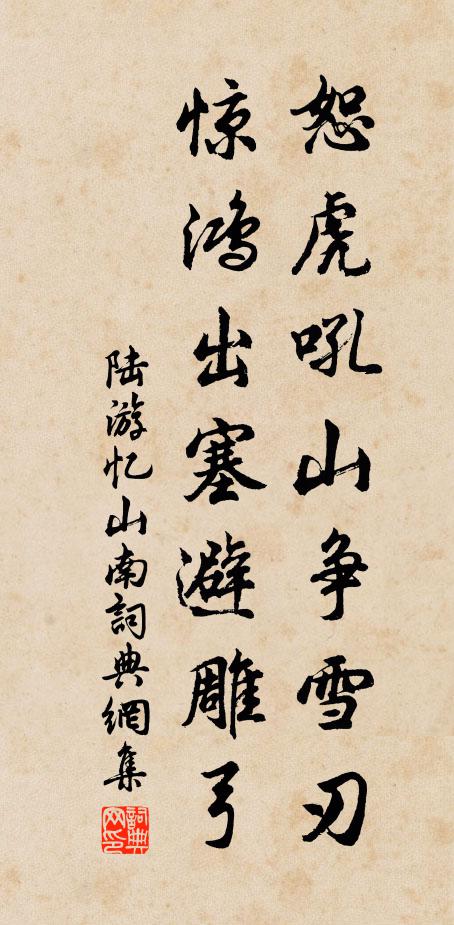 恕虎吼山争雪刃
惊鸿出塞避雕弓
陆游忆山南詞典網集
詞典
网印